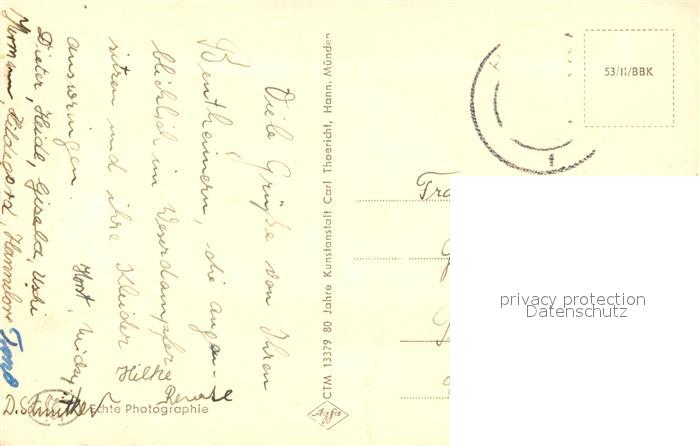 Viele Grüße von Ihren
Bentheimern, die augen-
blicklich im Weserdampfer
sitzen und ihre Kleider
auswringen.
Hilke
Renate
Horst,
Dieter, Heide, Gisela,
Hermann, Hildegard, Hannelore
D. Schnitker
Echte Photographie
CTM 13379 80 Jahre Kunstanstalt Carl Thoericht, Hann. Münden
Agfa
53/II/BBK
privacy protection
Datenschutz